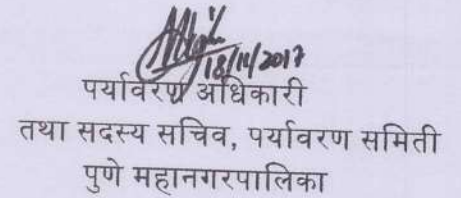 18/11/2017
पर्यावरण अधिकारी
तथा सदस्य सचिव, पर्यावरण समिती
पुणे महानगरपालिका